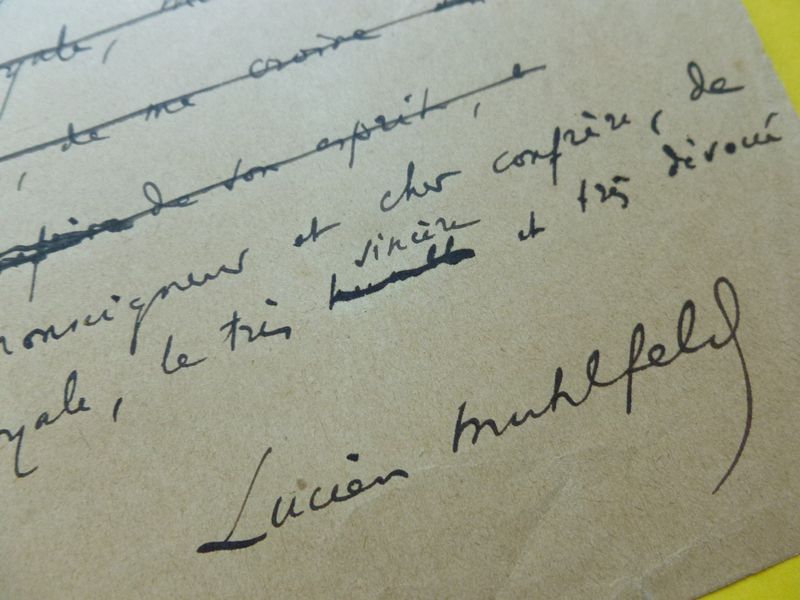 yale,
, de me croire
de son esprit,
onseigneur et cher confrère, de
sincère
yale, le très humble et très dévoué
Lucien Muhlfeld